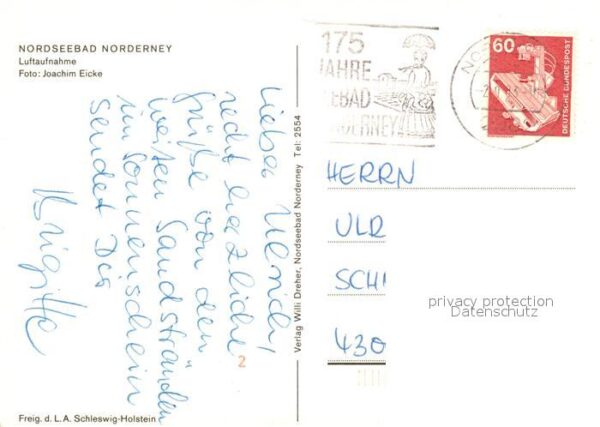 NORDSEEBAD NORDERNEY
Luftaufnahme
Foto: Joachim Eicke
Lieber Ulrich,
recht herzliche
Grüße von den
weißen Sandstränden
im Sonnenschein
sendet Dir
Brigitte
2
Freig. d. L. A. Schleswig-Holstein
Verlag Willi Dreher, Nordseebad Norderney Tel: 2554
175
JAHRE
EEBAD
RDERNEY
NO
60
DEUTSCHE BUNDESPOST
HERRN
ULR
SCHI
430
privacy protection
Datenschutz